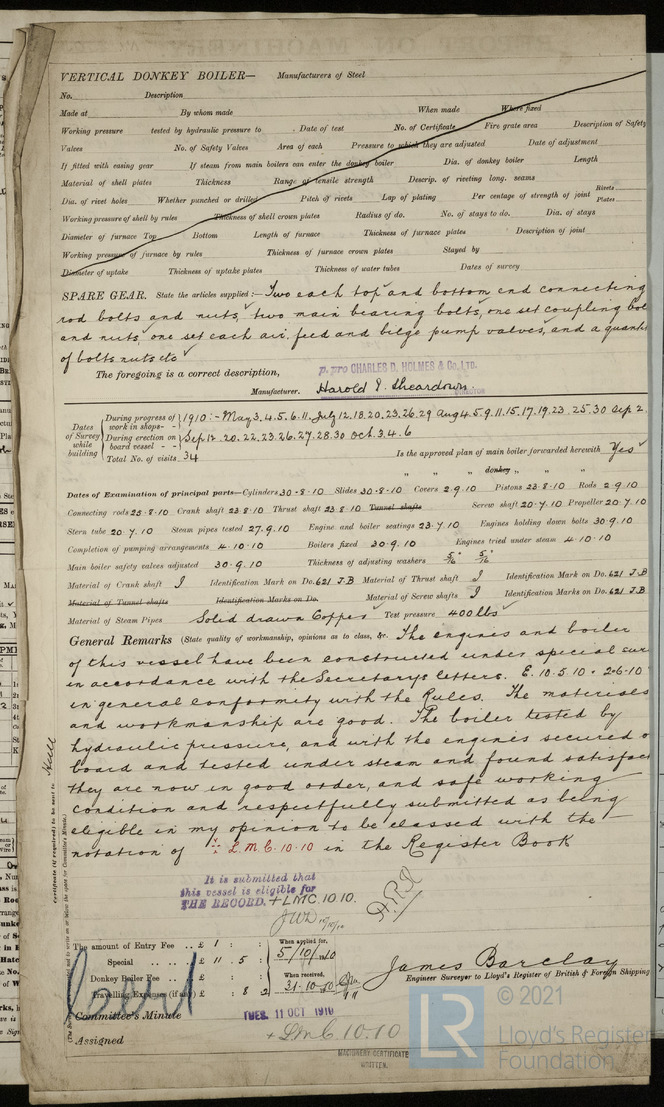 VERTICAL DONKEY BOILER— Manufacturers of Steel
No. Description
Made at By whom made When made Where fixed
Working pressure tested by hydraulic pressure to Date of test No. of Certificate Fire grate area Description of Safety
Valves No. of Safety Valves Area of each Pressure to which they are adjusted Date of adjustment
If fitted with easing gear If steam from main boilers can enter the donkey boiler Dia. of donkey boiler Length
Material of shell plates Thickness Range of tensile strength Descrip. of riveting long. seams
Dia. of rivet holes Whether punched or drilled Pitch of rivets Lap of plating Per centage of strength of joint Rivets Plates
Working pressure of shell by rules Thickness of shell crown plates Radius of do. No. of stays to do. Dia. of stays
Diameter of furnace Top Bottom Length of furnace Thickness of furnace plates Description of joint
Working pressure of furnace by rules Thickness of furnace crown plates Stayed by
Diameter of uptake Thickness of uptake plates Thickness of water tubes Dates of survey
SPARE GEAR. State the articles supplied:— Two each top and bottom end connecting
rod bolts and nuts, two main bearing bolts, one set coupling bol
and nuts, one set each air, feed and bilge pump valves, and a quanti
of bolts nuts etc
The foregoing is a correct description,
p. pro CHARLES D. HOLMES & Co., LTD.
Manufacturer. Harold E. Sheardown. DIRECTOR
Dates of Survey while building
During progress of work in shops- - 1910:- May 3.4.5.6.11. July 12.18.20.23.26.29 Aug 4.5.9.11.15.17.19.23.25.30 Sep 2.
During erection on board vessel - - Sep. 12.20.22.23.26.27.28.30 Oct. 3.4.6
Total No. of visits 34
Is the approved plan of main boiler forwarded herewith Yes
" " " donkey " " "
Dates of Examination of principal parts—Cylinders 30-8-10 Slides 30-8-10 Covers 2.9.10 Pistons 23.8.10 Rods 2.9.10
Connecting rods 23-8-10 Crank shaft 23.8.10 Thrust shaft 23.8.10 Tunnel shafts Screw shaft 20.7.10 Propeller 20.7.10
Stern tube 20.7.10 Steam pipes tested 27.9.10 Engine and boiler seatings 23.7.10 Engines holding down bolts 30.9.10
Completion of pumping arrangements 4.10.10 Boilers fixed 30.9.10 Engines tried under steam 4.10.10
Main boiler safety valves adjusted 30.9.10 Thickness of adjusting washers 5/16" 5/16"
Material of Crank shaft I Identification Mark on Do. 621 J.B Material of Thrust shaft I Identification Mark on Do. 621 J.B
Material of Tunnel shafts Identification Marks on Do. Material of Screw shafts I Identification Marks on Do. 621 J.B
Material of Steam Pipes Solid drawn Copper Test pressure 400 lbs
General Remarks (State quality of workmanship, opinions as to class, &c. The engines and boiler
of this vessel have been constructed under special sur
in accordance with the Secretarys letters. E. 10.5.10 . 2.6.10
in general conformity with the Rules. The materials
and workmanship are good. The boiler tested by
hydraulic pressure, and with the engines secured o
board and tested under steam and found satisfac
they are now in good order, and safe working
condition and respectfully submitted as being
eligible in my opinion to be classed with the
notation of L.M.C. 10.10 in the Register Book
It is submitted that
this vessel is eligible for
THE RECORD. + LMC. 10.10.
Certificate (if required) to be sent to Hull
The amount of Entry Fee .. £ 1 : :
Special .. .. £ 11 . 5 :
Donkey Boiler Fee .. £ : :
Travelling Expenses (if any) £ : 8 2
When applied for, 5/10/1910
When received, 31.10.10
James Barclay
Engineer Surveyor to Lloyd's Register of British & Foreign Shipping
Committee's Minute TUES. 11 OCT 1910
Assigned + LMC. 10.10
MACHINERY CERTIFICATE
WRITTEN.
© 2021
LR
Lloyd's Register
Foundation